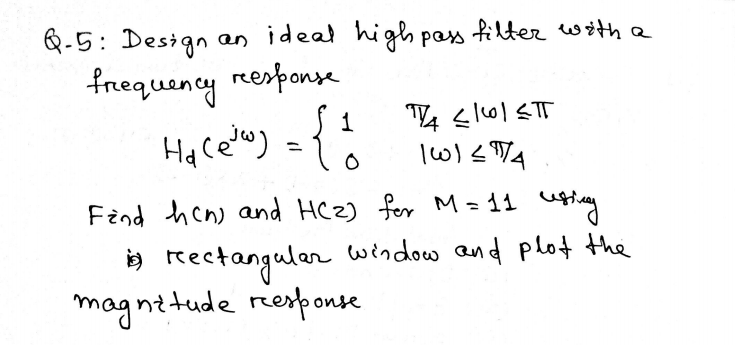 Q-5: Design an ideal high pass filter with a
frequency response
H_d(e^{jω}) = { 1 π/4 ≤ |ω| ≤ π
0 |ω| ≤ π/4
Find h(n) and H(z) for M = 11 using
i) rectangular window and plot the
magnitude response